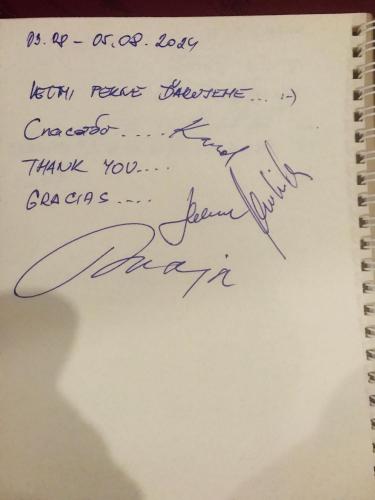 03.08 - 05.08.2024
VEĽMI PEKNE ĎAKUJEME... :-)
Спасибо .... Karol
THANK YOU....
GRACIAS ....